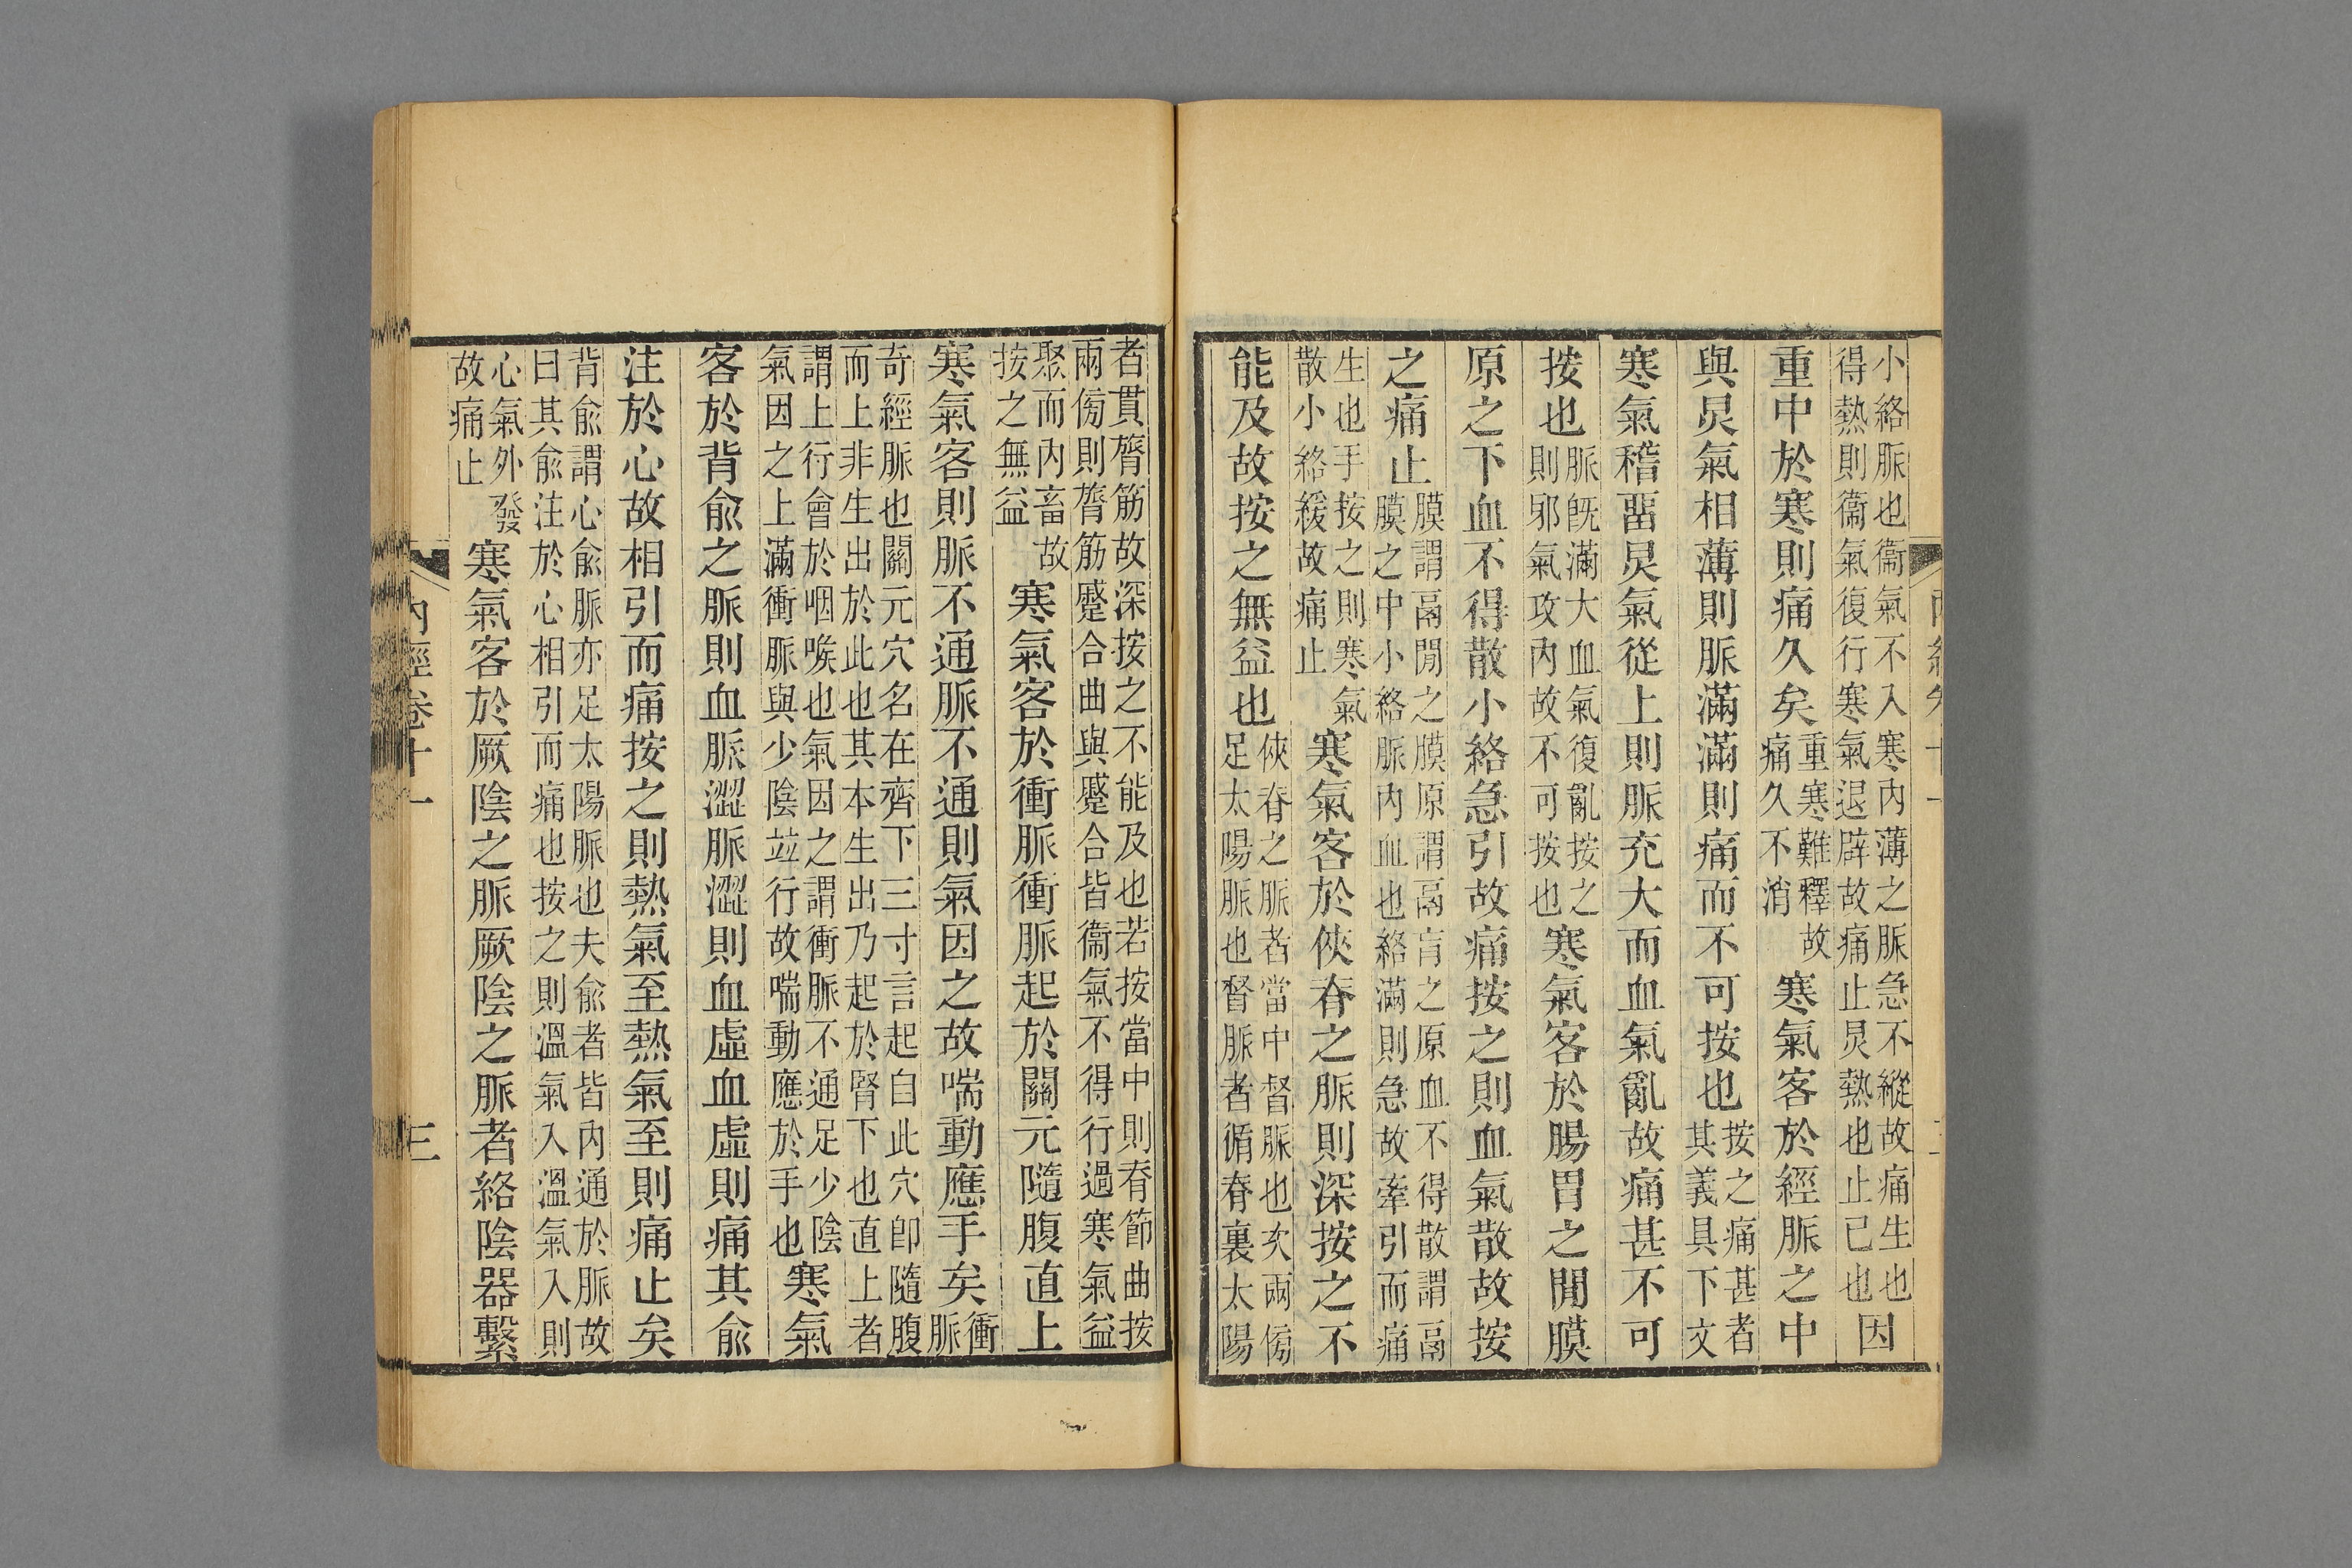 小絡脈也衞氣不入寒內薄之脈急不縱故痛生也
得熱則衞氣復行寒氣退辟故痛止炅熱也止已也
因
重中於寒則痛久矣
重寒難釋故
痛久不消
寒氣客於經脈之中
與炅氣相薄則脈滿滿則痛而不可按也
按之痛甚者
其義具下文
寒氣稽畱炅氣從上則脈充大而血氣亂故痛甚不可
按也
脈旣滿大血氣復亂按之
則邪氣攻內故不可按也
寒氣客於腸胃之閒膜
原之下血不得散小絡急引故痛按之則血氣散故按
之痛止
膜謂鬲閒之膜原謂鬲肓之原血不得散謂鬲
膜之中小絡脈內血也絡滿則急故牽引而痛
生也手按之則寒氣
散小絡緩故痛止
寒氣客於俠脊之脈則深按之不
能及故按之無益也
俠脊之脈者當中督脈也次兩傍
足太陽脈也督脈者循脊裏太陽
者貫膂筋故深按之不能及也若按當中則脊節曲按
兩傍則膂筋蹙合曲與蹙合皆衞氣不得行過寒氣益
聚而內畜故
按之無益
寒氣客於衝脈衝脈起於關元隨腹直上
寒氣客則脈不通脈不通則氣因之故喘動應手矣
衝
脈
奇經脈也關元穴名在齊下三寸言起自此穴卽隨腹
而上非生出於此也其本生出乃起於腎下也直上者
謂上行會於咽喉也氣因之謂衝脈不通足少陰
氣因之上滿衝脈與少陰並行故喘動應於手也
寒氣
客於背兪之脈則血脈澀脈澀則血虛血虛則痛其兪
注於心故相引而痛按之則熱氣至熱氣至則痛止矣
背兪謂心兪脈亦足太陽脈也夫兪者皆內通於脈故
曰其兪注於心相引而痛也按之則溫氣入溫氣入則
心氣外發
故痛止
寒氣客於厥陰之脈厥陰之脈者絡陰器繫
內經卷十一
三